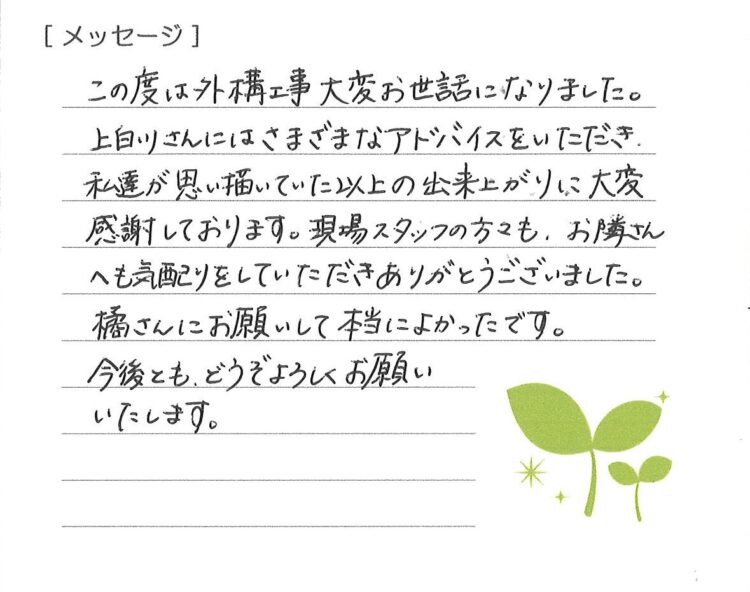 [ メッセージ ]
この度は外構工事大変お世話になりました。
上白川さんにはさまざまなアドバイスをいただき、
私達が思い描いていた以上の出来上がりに大変
感謝しております。現場スタッフの方々も、お隣さん
へも気配りをしていただきありがとうございました。
橘さんにお願いして本当によかったです。
今後とも、どうぞよろしくお願い
いたします。